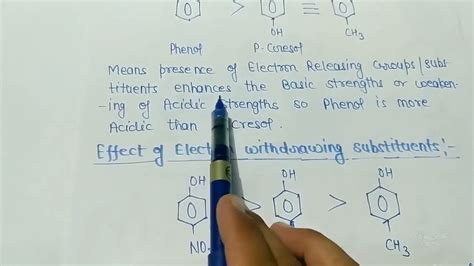 > ≡
OH CH3
Phenol P-Coresol
Means presence of Electron Releasing Groups/subs
tituents enhances the Basic strengths or weaken-
-ing of Acidic strengths so Phenol is more
Acidic than cresol.
Effect of Electron withdrawing substituents:-
OH OH OH
> >
NO CH3